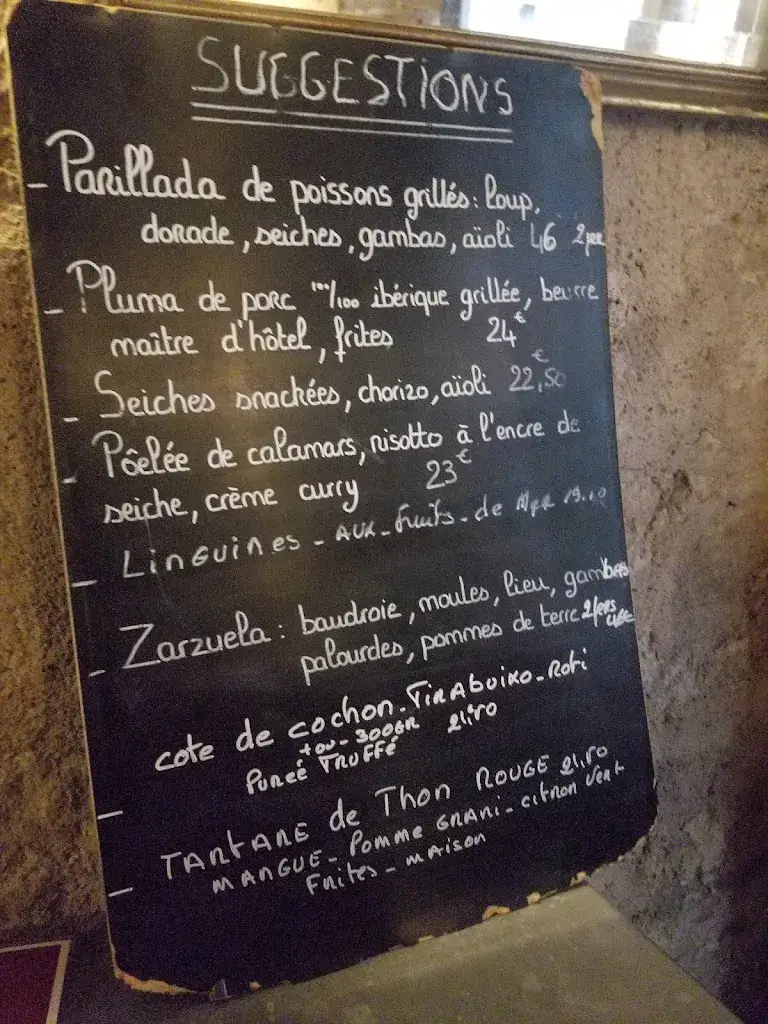 SUGGESTIONS
- Parillada de poissons grillés: loup,
dorade, seiches, gambas, aïoli 46 2per
- Pluma de porc ibérique grillée, beurre
maître d'hôtel, frites 24€
- Seiches snackées, chorizo, aïoli 22,50€
- Pôelée de calamars, risotto à l'encre de
seiche, crème curry 23€
- Linguines - aux - fruits - de
- Zarzuela: baudroie, moules, lieu, gambas
palourdes, pommes de terre
cote de cochon - Tirabuixo - Roti
+ ou - 300GR 21.50
- Pureé Truffé
TARTARE de Thon ROUGE 21.50
- MANGUE - Pomme GRANI - citron vert
Frites - maison